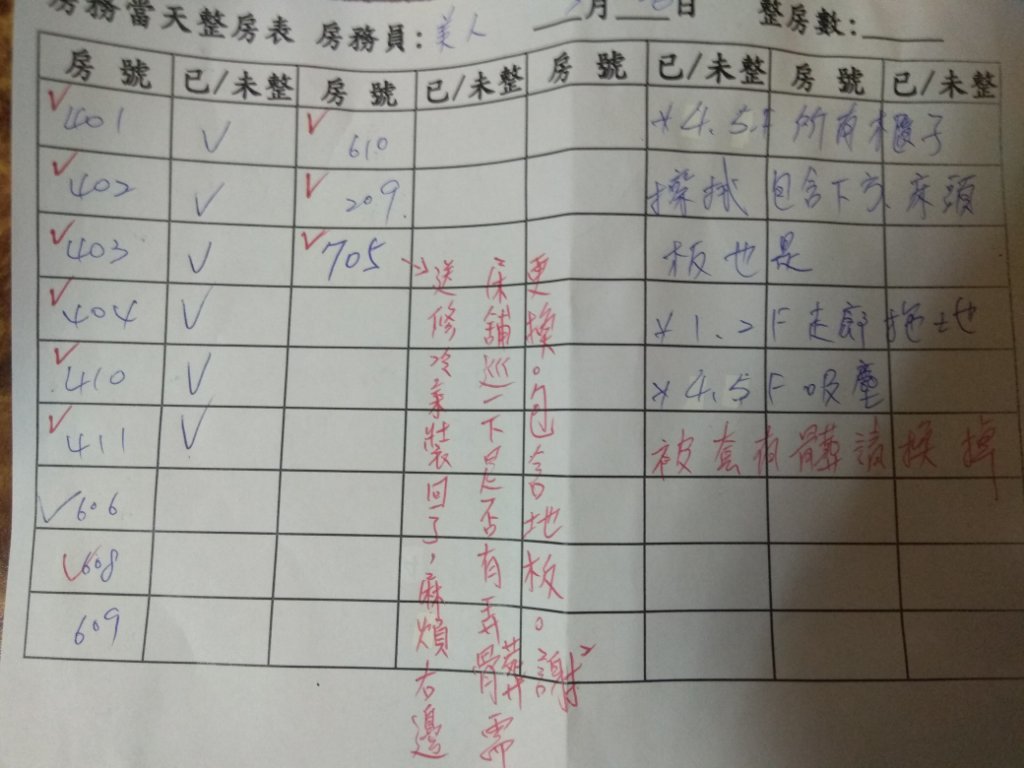 房務當天整房表 房務員: 美人 ___月___日 整房數:_____
房 號 已/未整 房 號 已/未整 房 號 已/未整 房 號 已/未整
✓401 ✓ ✓610
✓402 ✓ ✓209
✓403 ✓ ✓705
✓404 ✓
✓410 ✓
✓411 ✓
✓606
✓608
609
*4.5F 所有櫃子
擦拭 包含下方 床頭
板也是
*1.2F 走廊拖地
*4.5F 吸塵
被套有髒請換掉
送修冷氣裝回了,麻煩右邊
床舖巡一下是否有弄髒需
更換。包含地板。謝²